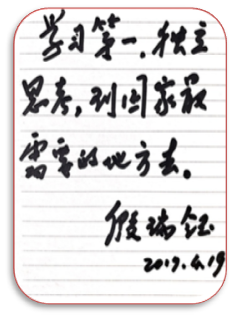 学习第一，独立
思考，到国家最
需要的地方去。
殷瑞钰
2017.4.19